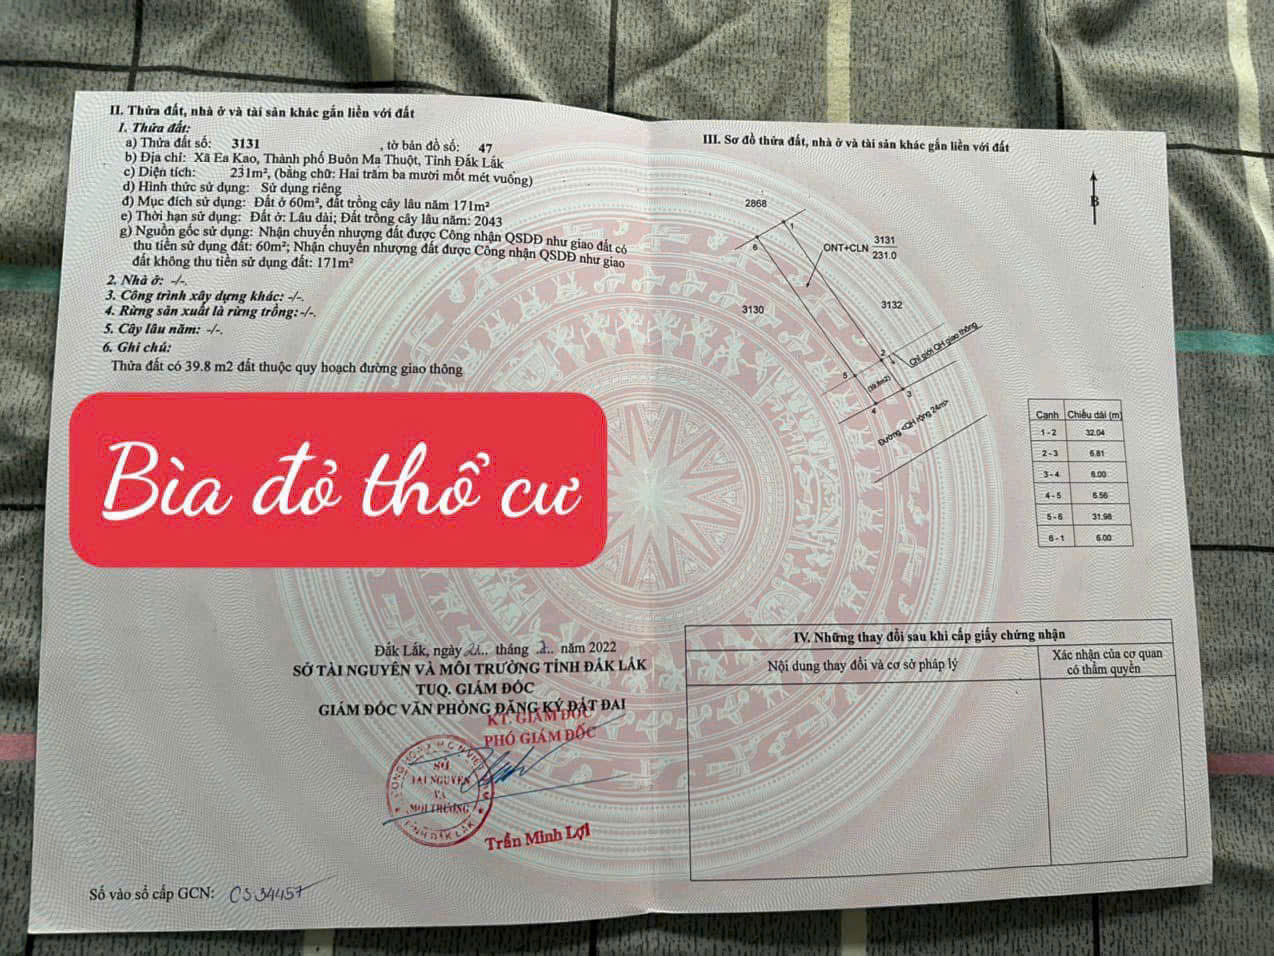 II. Thửa đất, nhà ở và tài sản khác gắn liền với đất
1. Thửa đất:
a) Thửa đất số: 3131 , tờ bản đồ số: 47
b) Địa chỉ: Xã Ea Kao, Thành phố Buôn Ma Thuột, Tỉnh Đắk Lắk
c) Diện tích: 231m², (bằng chữ: Hai trăm ba mươi mốt mét vuông)
d) Hình thức sử dụng: Sử dụng riêng
đ) Mục đích sử dụng: Đất ở 60m², đất trồng cây lâu năm 171m²
e) Thời hạn sử dụng: Đất ở: Lâu dài; Đất trồng cây lâu năm: 2043
g) Nguồn gốc sử dụng: Nhận chuyển nhượng đất được Công nhận QSDĐ như giao đất có
thu tiền sử dụng đất: 60m²; Nhận chuyển nhượng đất được Công nhận QSDĐ như giao
đất không thu tiền sử dụng đất: 171m²
2. Nhà ở: -/-.
3. Công trình xây dựng khác: -/-.
4. Rừng sản xuất là rừng trồng: -/-.
5. Cây lâu năm: -/-.
6. Ghi chú:
Thửa đất có 39.8 m2 đất thuộc quy hoạch đường giao thông
Bìa đỏ thổ cư
Đắk Lắk, ngày 21... tháng .2.. năm 2022
SỞ TÀI NGUYÊN VÀ MÔI TRƯỜNG TỈNH ĐẮK LẮK
TUQ. GIÁM ĐỐC
GIÁM ĐỐC VĂN PHÒNG ĐĂNG KÝ ĐẤT ĐAI
KT. GIÁM ĐỐC
PHÓ GIÁM ĐỐC
SỞ
TÀI NGUYÊN
VÀ
MÔI TRƯỜNG
TỈNH ĐẮK LẮK
Trần Minh Lợi
Số vào sổ cấp GCN: CS34457
III. Sơ đồ thửa đất, nhà ở và tài sản khác gắn liền với đất
B
2868
1
6
ONT+CLN 3131
231.0
3130
3132
2
Chỉ giới QH giao thông
5
(39.8m2)
3
4
Đường <QH rộng 24m>
Cạnh Chiều dài (m)
1 - 2 32.04
2 - 3 6.81
3 - 4 6.00
4 - 5 6.56
5 - 6 31.98
6 - 1 6.00
IV. Những thay đổi sau khi cấp giấy chứng nhận
Nội dung thay đổi và cơ sở pháp lý
Xác nhận của cơ quan
có thẩm quyền